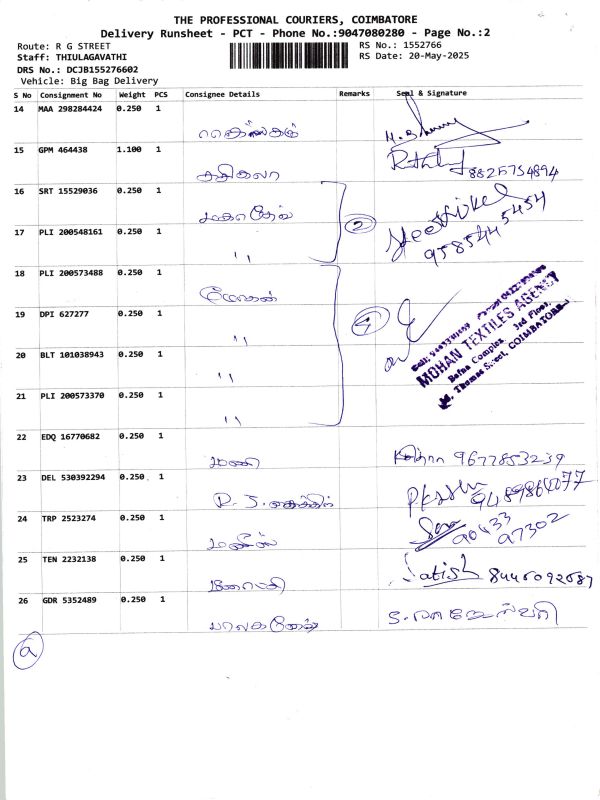 THE PROFESSIONAL COURIERS, COIMBATORE
Delivery Runsheet - PCT - Phone No.:9047080280 - Page No.:2
Route: R G STREET
RS No.: 1552766
Staff: THIULAGAVATHI
RS Date: 20-May-2025
DRS No.: DCJB155276602
Vehicle: Big Bag Delivery
S No Consignment No Weight PCS Consignee Details Remarks Seal & Signature
14 MAA 298284424 0.250 1
15 GPM 464438 1.100 1
8825754894
16 SRT 15529036 0.250 1
மகாதேவ்
2
17 PLI 200548161 0.250 1
"
18 PLI 200573488 0.250 1
மோகன்
19 DPI 627277 0.250 1
"
4
MOHAN TEXTILES AGENCY
Bafna Complex, 3rd Floor,
Thomas Street, COIMBATORE
20 BLT 101038943 0.250 1
"
21 PLI 200573370 0.250 1
"
22 EDQ 16770682 0.250 1
மணி
9677853239
23 DEL 530392294 0.250 1
24 TRP 2523274 0.250 1
25 TEN 2232138 0.250 1
Satish
26 GDR 5352489 0.250 1
பாலகணேஷ்